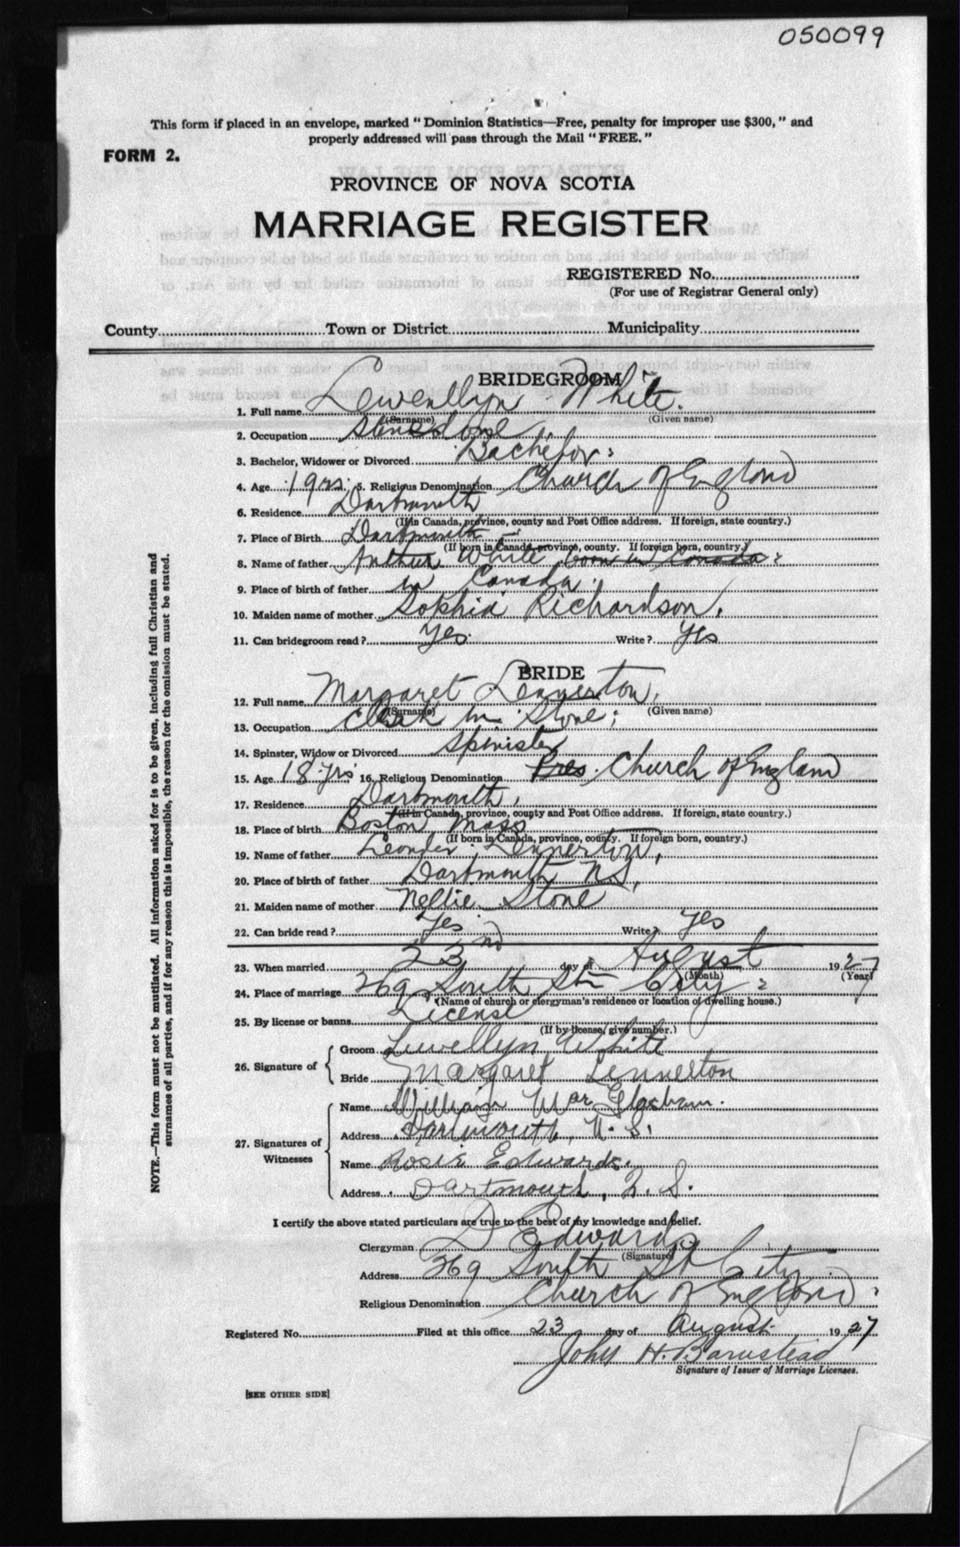 050099
This form if placed in an envelope, marked "Dominion Statistics—Free, penalty for improper use $300," and
properly addressed will pass through the Mail "FREE."
FORM 2.
PROVINCE OF NOVA SCOTIA
MARRIAGE REGISTER
REGISTERED No.
(For use of Registrar General only)
County Town or District Municipality
BRIDEGROOM
1. Full name Lewenllyn White.
(Surname) (Given name)
2. Occupation
3. Bachelor, Widower or Divorced Bachelor
4. Age 19 5. Religious Denomination Church of England
6. Residence Dartmouth
(If in Canada, province, county and Post Office address. If foreign, state country.)
7. Place of Birth Dartmouth
(If born in Canada, province, county. If foreign born, country.)
8. Name of father Arthur White born in Canada
9. Place of birth of father in Canada.
10. Maiden name of mother Sophia Richardson.
11. Can bridegroom read? Yes. Write? Yes
BRIDE
12. Full name Margaret Lennerton,
(Surname) (Given name)
13. Occupation Clerk in Store;
14. Spinster, Widow or Divorced Spinister
15. Age 18 yrs 16. Religious Denomination Pres Church of England
17. Residence Dartmouth,
(If in Canada, province, county and Post Office address. If foreign, state country.)
18. Place of birth Boston Mass
(If born in Canada, province, county. If foreign born, country.)
19. Name of father Leander Lennerton,
20. Place of birth of father Dartmouth N.S,
21. Maiden name of mother Nellie Stone
22. Can bride read? Yes Write? Yes
23. When married 23nd day of August 1927
(Month) (Year)
24. Place of marriage 269 South St City
(Name of church or clergyman's residence or location of dwelling house.)
25. By license or banns License
(If by license, give number.)
26. Signature of
Groom Lewellyn White
Bride Margaret Lennerton
27. Signatures of Witnesses
Name William
Address Dartmouth, N.S.
Name Rosie Edwards.
Address Dartmouth, N.S.
I certify the above stated particulars are true to the best of my knowledge and belief.
Clergyman D Edwards
(Signature)
Address 269 South St City
Religious Denomination Church of England
Registered No. Filed at this office 23 day of August 1927
John H. Barnstead
Signature of Issuer of Marriage Licenses.
[SEE OTHER SIDE]
NOTE.—This form must not be mutilated. All information asked for is to be given, including full Christian and
surnames of all parties, and if for any reason this is impossible, the reason for the omission must be stated.